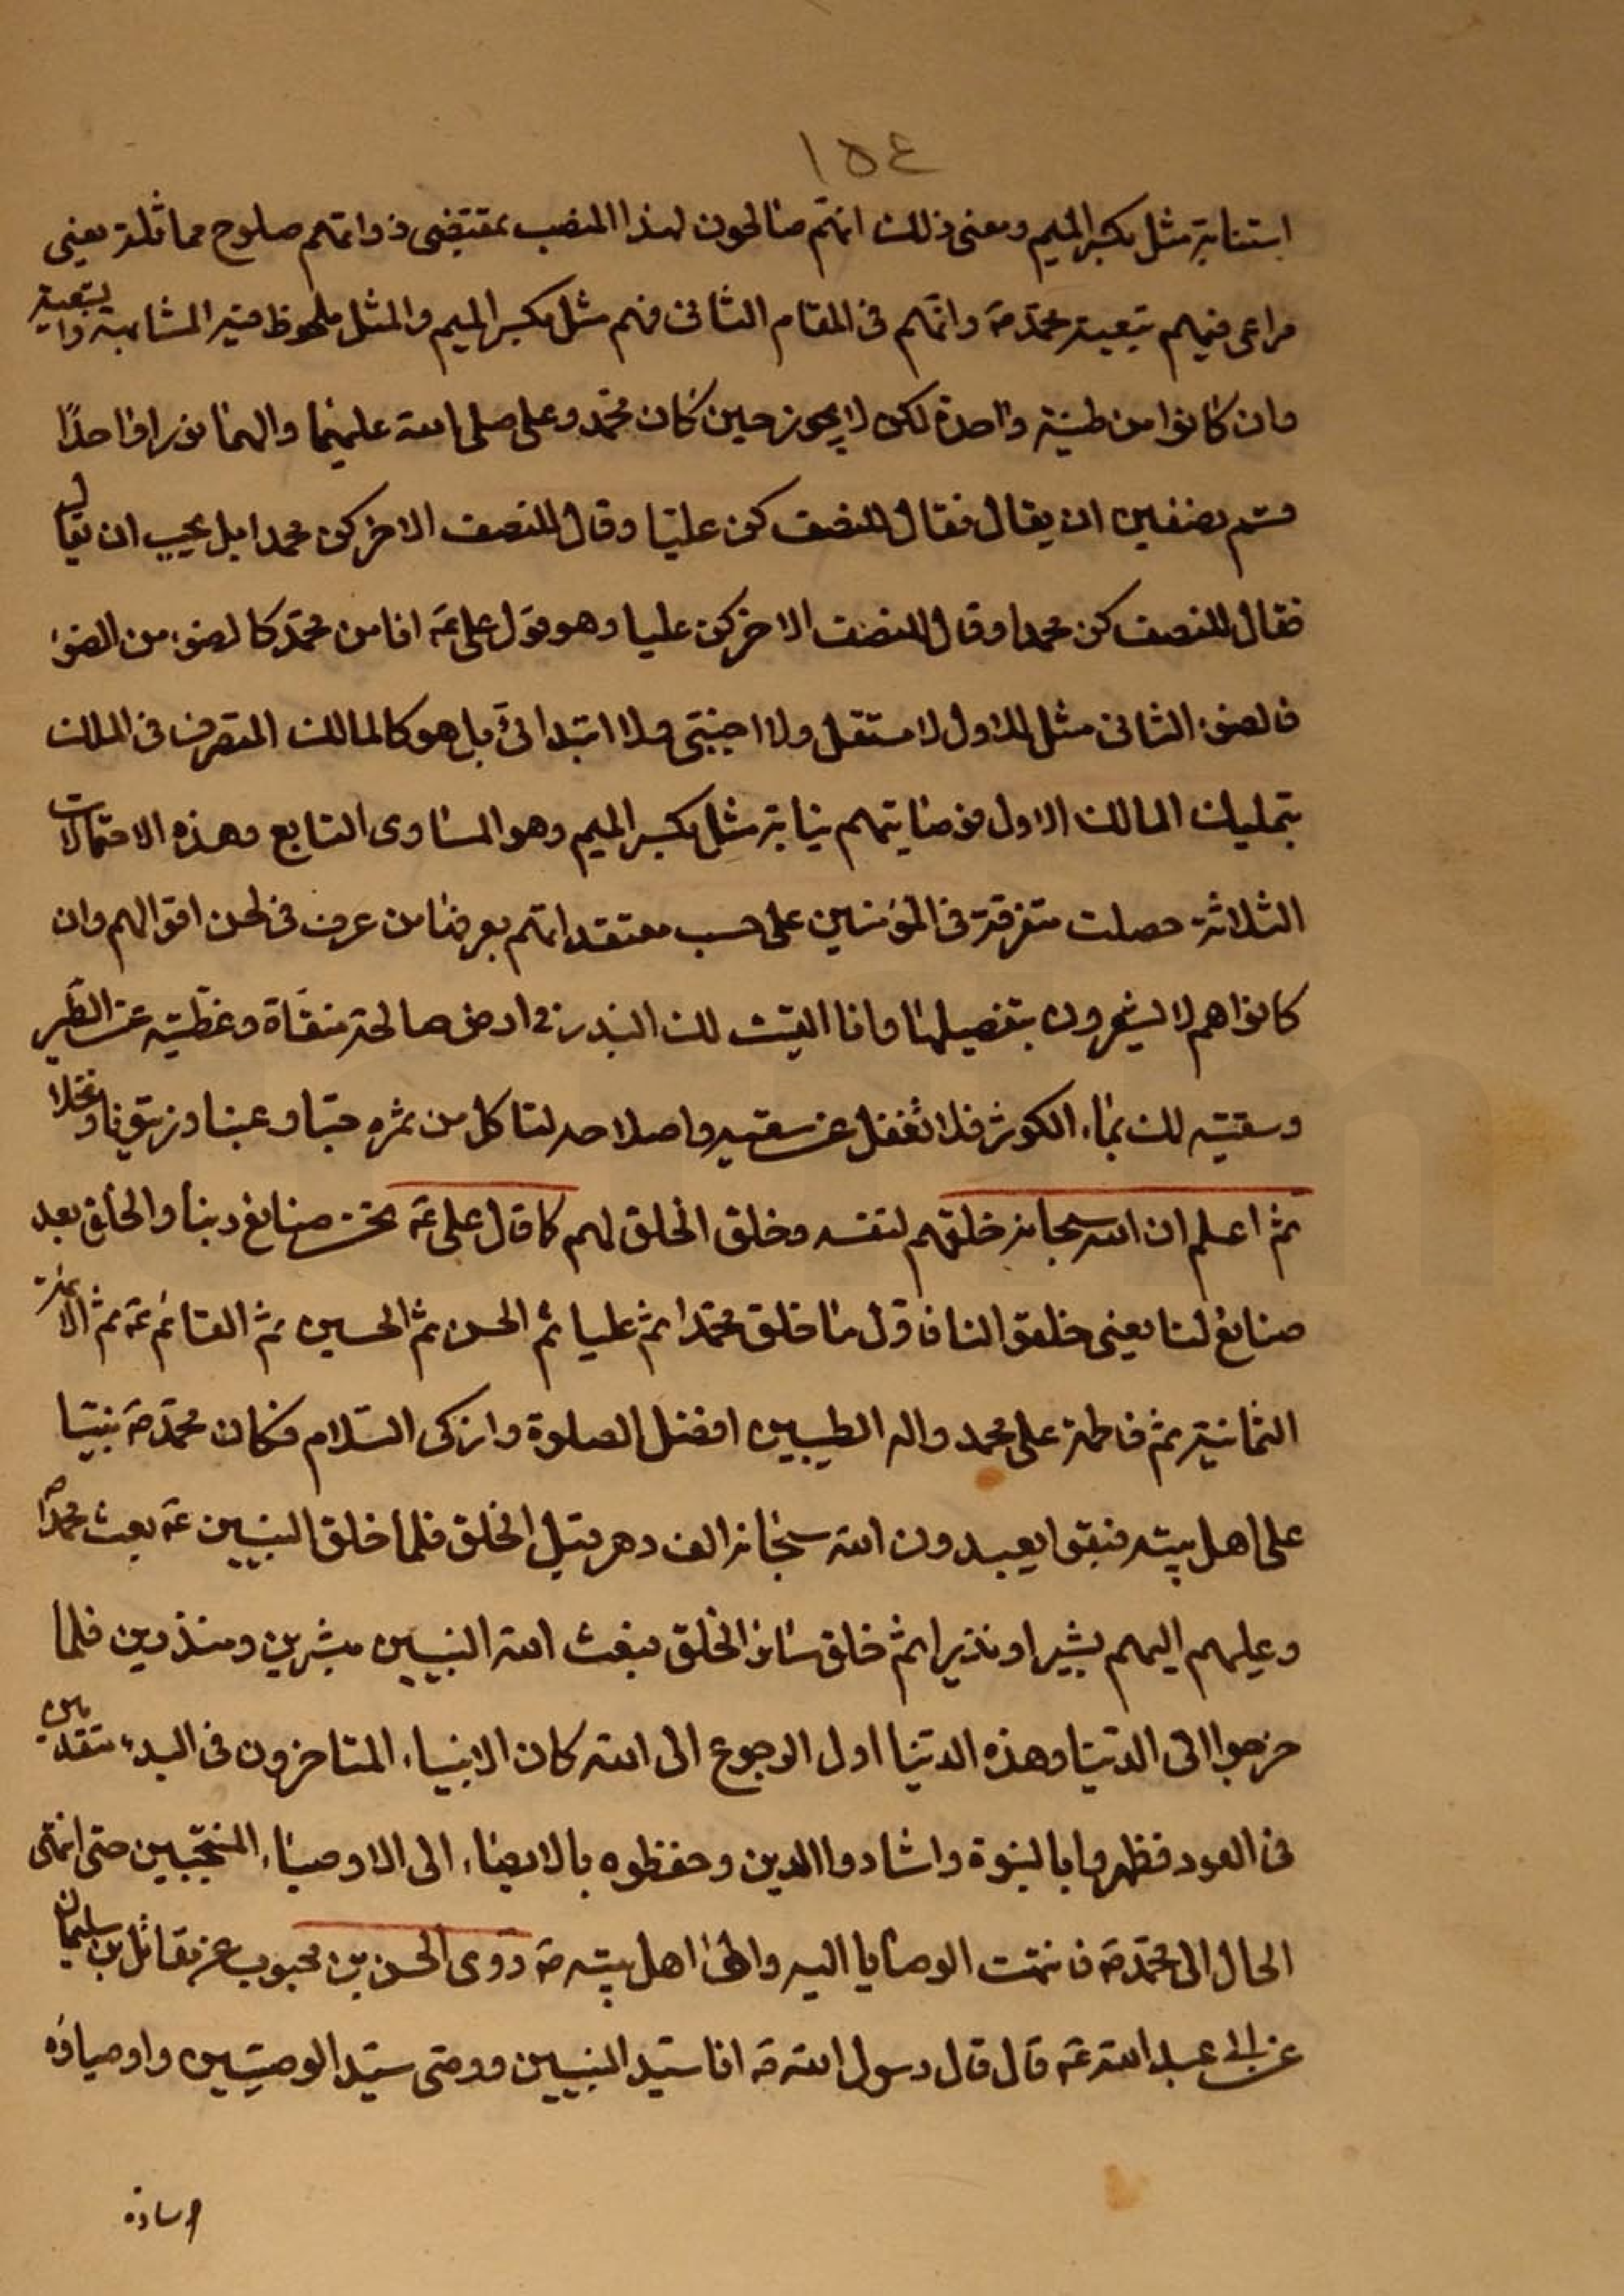 ١٥٤
استنابة مثل بكسر الميم ومعنى ذلك انهم صالحون لهذا المنصب بمقتضى ذواتهم صلوح مماثلة يعنى
مراعى فيهم تبعية محمد ص وانهم فى المقام الثانى فهم مثل بكسر الميم والمثل ملحوظ فيه المشابهة والتبعية
وان كانوا من طينة واحدة لكن لا يجوز حين كان محمد وعلى صلى الله عليهما والهما نورا واحدا
قسم نصفين ان يقال فقال للنصف كن عليا وقال للنصف الاخر كن محمدا بل يجب ان يقال
فقال للنصف كن محمدا وقال للنصف الاخر كن عليا وهو قول على ع انا من محمد كالضوء من الضوء
فالضوء الثانى مثل الاول لا مستقل ولا اجنبى ولا ابتدائى بل هو كالمالك المتصرف فى الملك
بتمليك المالك الاول فوصايتهم نيابة مثل بكسر الميم وهو المساوى التابع وهذه الاحتمالات
الثلاثة حصلت متفرقة فى المؤمنين على حسب معتقداتهم يعرفها من عرف فى لحن اقوالهم وان
كانوا هم لا يشعرون بتفصيلها وانا القيت لك البذر فى ارض صالحة منقاة وغطيته عن الطير
وسقيته لك بماء الكوثر فلا تغفل عن سقيه واصلاحه لتاكل من ثمره حبا وعنبا وزيتونا ونخلا
ثم اعلم ان الله سبحانه خلقهم لنفسه وخلق الخلق لهم كما قال على ع نحن صنايع ربنا والخلق بعد
صنايع لنا يعنى خلقوا لنا فاول ما خلق محمدا ثم عليا ثم الحسن ثم الحسين ثم القائم ع ثم الائمة
الثمانية ثم فاطمة على محمد واله الطيبين افضل الصلوة وازكى السلام فكان محمد ص نبيا
على اهل بيته فبقوا يعبدون الله سبحانه الف دهر قبل الخلق فلما خلق النبيين ع بعث محمدا ص
وعليهم اليهم بشيرا ونذيرا ثم خلق سائر الخلق فبعث الله النبيين مبشرين ومنذرين فلما
خرجوا الى الدنيا وهذه الدنيا اول الرجوع الى الله كان الانبياء المتاخرون فى البدء متقدمين
فى العود فظهروا بالنبوة واشادوا الدين وحفظوه بالايصاء الى الاوصياء المنتجبين حتى انتهى
الحال الى محمد ص فانتهت الوصايا اليه والى اهل بيته ص روى الحسن بن محبوب عن مقاتل بن سليمان
عن ابى عبد الله ع قال قال رسول الله ص انا سيد النبيين ووصى سيد الوصيين واوصياؤه